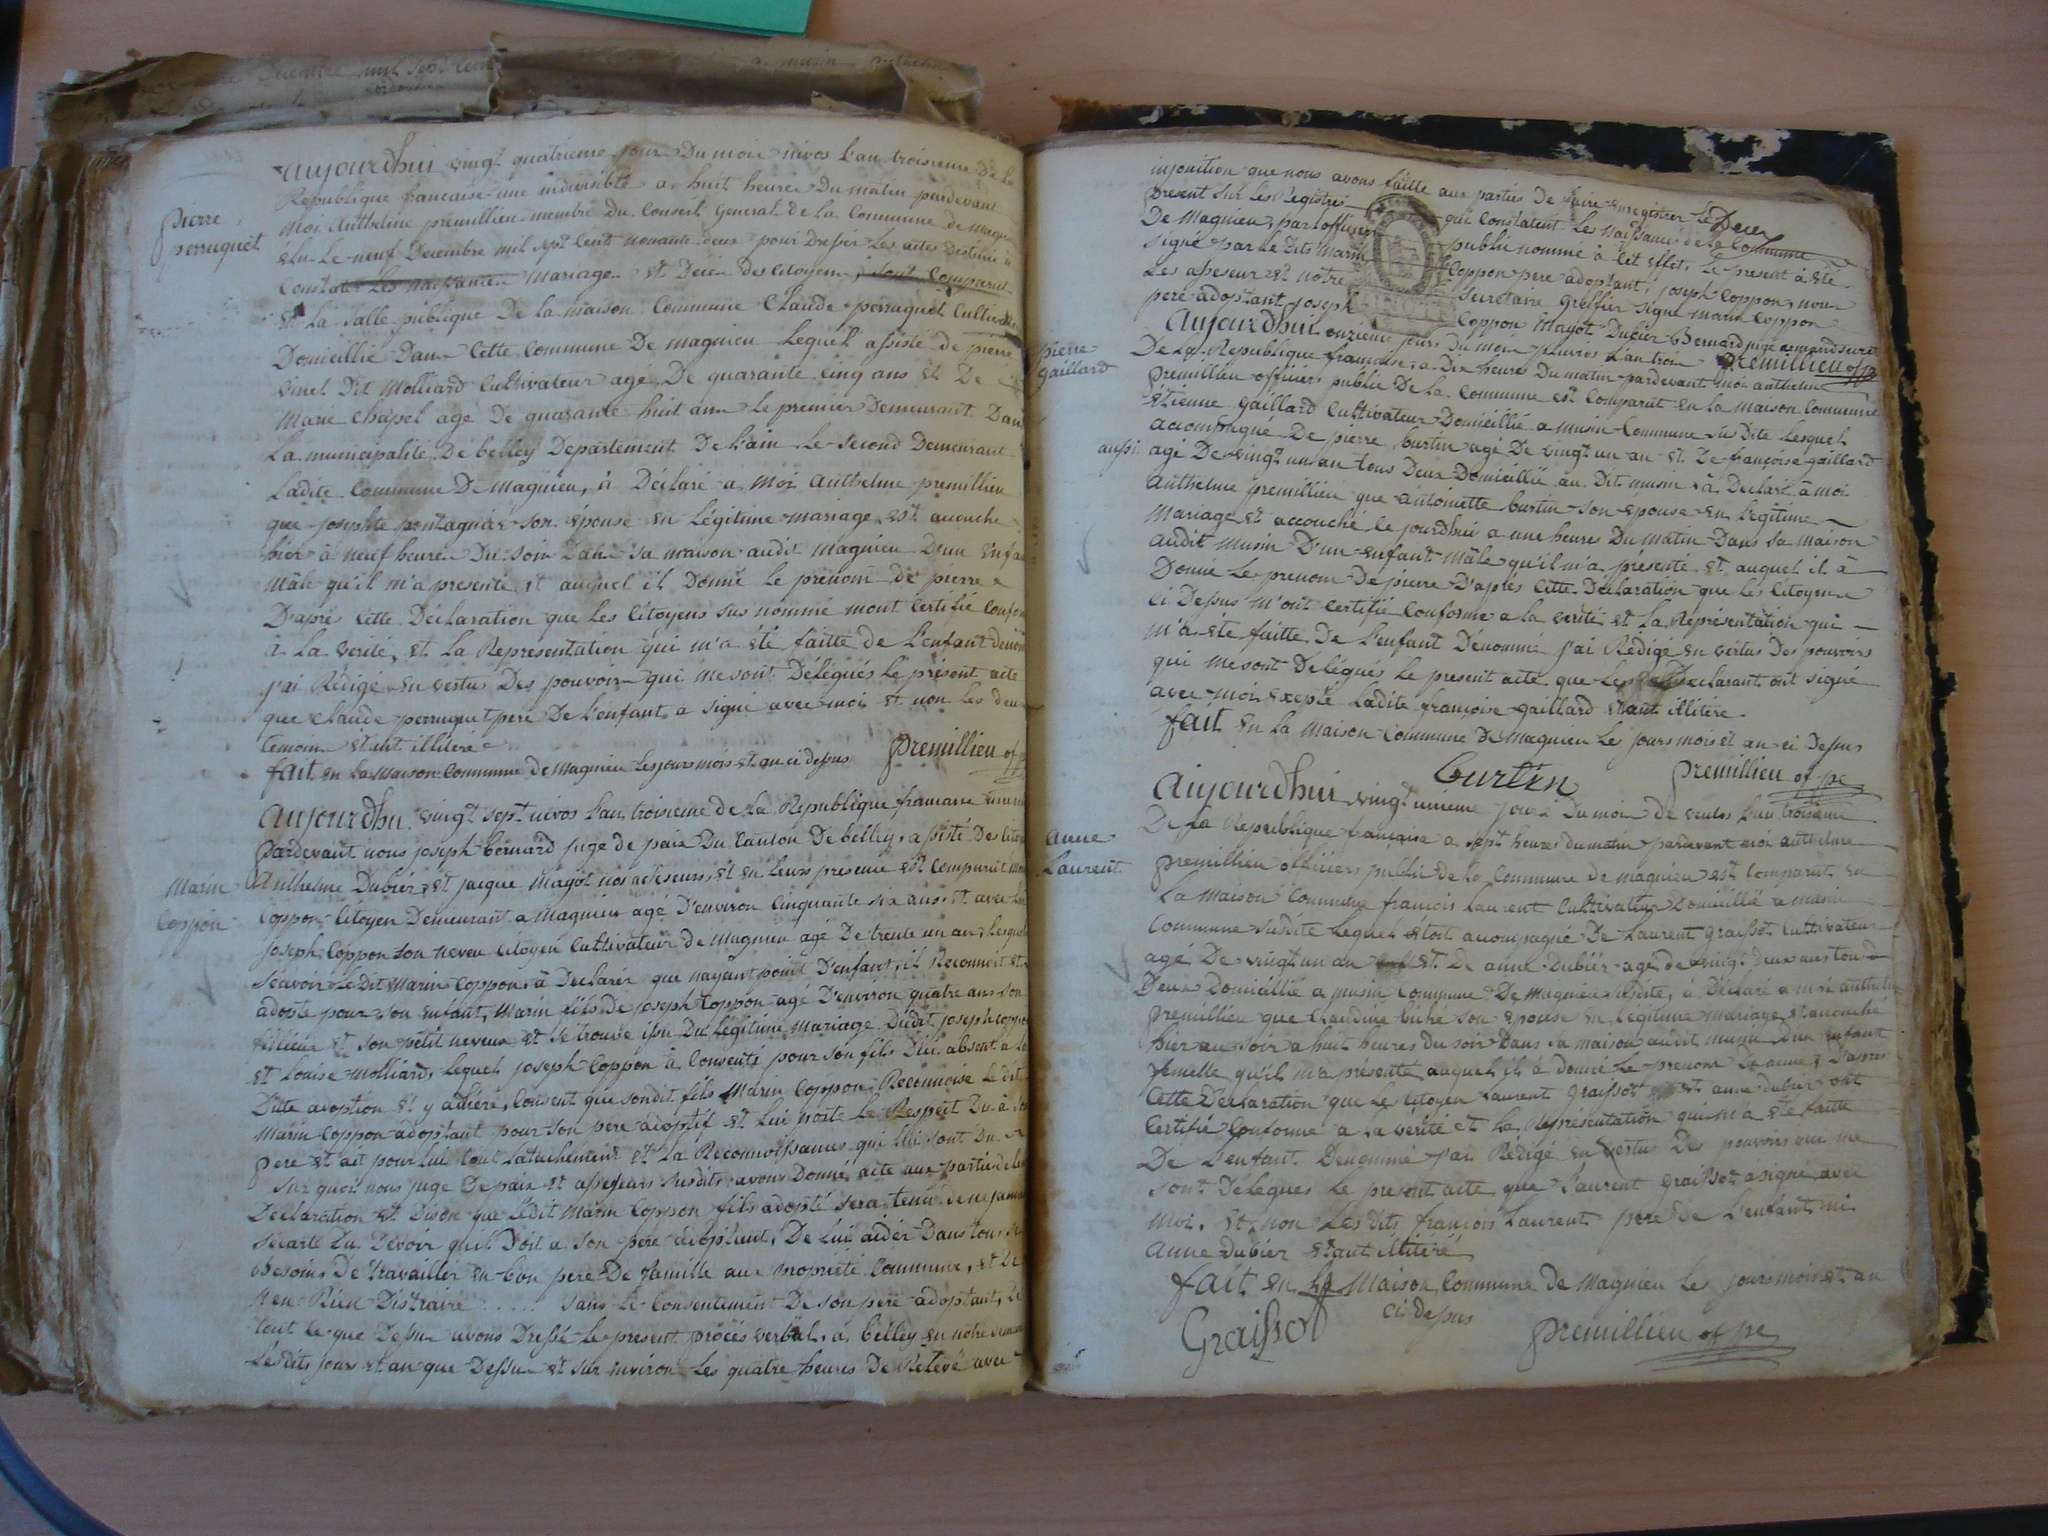 Aujourdhui vingt quatrieme jour Du mois nivos l'an troisieme de la
Republique francaise une indivisible a huit heures Du matin pardevant
moi Anthelme premillieu membre du Conseil General de la Commune de magnieu
élu le neuf Decembre mil sept Cent nonante deux pour Dresser Les actes Destiné à
Constater les naissances Mariages et Décés des Citoyens, sont Comparus
en la salle publique De la maison Commune Claude perruquet Cultivateur
Domicillié Dans Cette Commune De magnieu Lequel assisté de pierre
vinet Dit Molliard Cultivateur agé De quarante Cinq ans et De
Marie Chapel agé De quarante huit ans le premier Demeurant Dans
La municipalité De belley Departement De L'ain Le second Demeurant
Ladite Commune De Magnieu, à Déclaré a Moi Anthelme premillieu
que josephte pontagnier son épouse en Légitime mariage est acouché
hier à neuf heures Du soir Dans sa maison audit magnieu D'un Enfant
Mâle qu'il m'a presenté et auquel il Donné le prenom de pierre
D'aprés Cette Déclaration que Les Citoyens sus nommé mont Certifié Conforme
à la verité, et la Representation qui m'a été faitte de L'enfant denommé
j'ai Rédigé en vertus Des pouvoirs qui me sont Délégués le présent acte
que Claude perruquet pere De L'enfant a signé avec moi et non Les deux
temoins etant illiteré
fait en La Maison Commune de Magnieu Les jours mois et an ci dessus Premillieu of p
pierre
perruquet
Aujourdhui vingt sept nivos L'an troisieme de La Republique francaise
Pardevant nous joseph bernard juge de paix Du Canton De belley, assisté Des Citoyens
Anthelme Dubiér et jacque Mayot nos asseseurs, et en Leurs presence est Comparut Marin
Coppon Citoyen Demeurant a Magnieu agé D'environ Cinquante six ans et avec lui
joseph Coppon son neveu Citoyen Cultivateur de Magnieu agé De trente un an, lesquels
Scavoir Ledit Marin Coppon à Declarér que nayant point D'enfant, il Reconnoit et
adopte pour son enfant, Marin fils De joseph Coppon agé D'environ quatre ans son
et son petit neveux et se trouve issu Du Légitime Mariage Dudit joseph Coppon
et Louise Molliard, Lequel joseph Coppon à Consenti pour son fils D'ici absent à La
Ditte adoption et y adhère, Consent que sondit fils Marin Coppon Reconnoise Ledit
Marin Coppon adoptant pour son pere adoptif et Lui porte Le Respect Du à
pere et ait pour Lui tout L'attachement et La Reconnoissances qui lui sont Du
Sur quoi nous juge De paix et assesseurs susdits avons Donné acte aux parties de Leur
Declaration et Disons que Ledit Marin Coppon fils adopté sera tenu de ne jamais
s'écarté Du Devoir qu'il Doit a son pere adoptant, De Lui aidér Dans tous
besoins De travaillér en bon pere De famille aux propriété Commune, et De
n'en Rien Distraire ..... sans le Consentement De son pere adoptant, De
tout Ce que Dessus avons Dressé Le present procés verbal, à belley en notre
Lesdits jours et an que Dessus et sur environ Les quatre heures De Relevé avec
Marin
Coppon
injonition que nous avons faitte aux parties De faire enregistrer Le
present sur Les Régistres qui Constatent Les Naissances de la Commune
De Magnieu, par L'officier public nommé à Cet effet, Le present à été
signé par Le Dits Marin Coppon pere adoptant, joseph Coppon, nous
Les asseseur et notre secretaire greffier signé Marin Coppon
pere adoptant joseph Coppon Mayot Dubier Bernard juge
Premillieu of p
Aujourdhui onzieme jours Du mois pluvios L'an trois
De La Republique francaise a Dix heures Du matin pardevant moi anthelme
premillieu officiers public De La Commune est Comparut en La maison Commune
étienne gaillard Cultivateur Domicillié a musin Commune su Dite Lesquel
acompagné De pierre burtin agé De vingt un an et De françoise gaillard
aussi agé De vingt un an tous Deux Domicillié au Dit musin à Declaré à moi
Anthelme premillieu que antoinette burtin son épouse en Legitime
Mariage et accouché le jourdhui a une heures Du matin Dans sa maison
audit musin D'un enfant mâle qu'il m'a présenté et auquel il à
Donne Le prenom De pierre D'aprés Cette Déclaration que Les Citoyens
ci Dessus m'ont Certifié Conforme a la verité et la Représentation qui
m'a ete faitte De L'enfant Dénommé j'ai Rédigé en vertus Des pouvoirs
qui me sont Délégués Le present acte que Les Declarant ont signé
avec moi exepté Ladite françoise gaillard etant illitére
fait en La Maison Commune De Magnieu Les jours mois et an ci Dessus
Burtin Premillieu of pe
pierre
gaillard
Aujourdhui vingt unieme jours Du mois de ventos L'an troisieme
De La Republique française a sept heures du matin pardevant moi anthelme
premillieu officiers public de La Commune de magnieu est Comparut en
La maison Commune francois Laurent Cultivateur Domicillié a musin
Commune susdite Lequel etoit acompagné De Laurent graissot Cultivateur
agé De vingt un an et De anne Dubiér agé de vingt Deux ans tous
Deux Domicillié a musin Commune De Magnieu susdite, à Déclaré a moi anthelme
Premillieu que Claudine biché son épouse en Legitime mariage et accouché
hier au soir a huit heures du soir Dans sa maison audit musin D'un enfant
femelle qu'il m'a présenté auquel il à donné Le prenom De anne, D'aprés
Cette Declaration que Les Citoyens Laurent graissot et anne dubiér ont
Certifié Conforme a la verité et La Représentation qui m'a été faitte
De L'enfant Denommé j'ai Rédigé en vertus Des pouvoirs que me
sont Délégues Le present acte que Laurent graissot a signé avec
Moi, et non Les Dits françois Laurent pere de L'enfant ni
Anne Dubier etant illitéré
fait en La Maison Commune de Magnieu Les jours mois et an
ci dessus
Graissot Premillieu of pe
Anne
Laurent